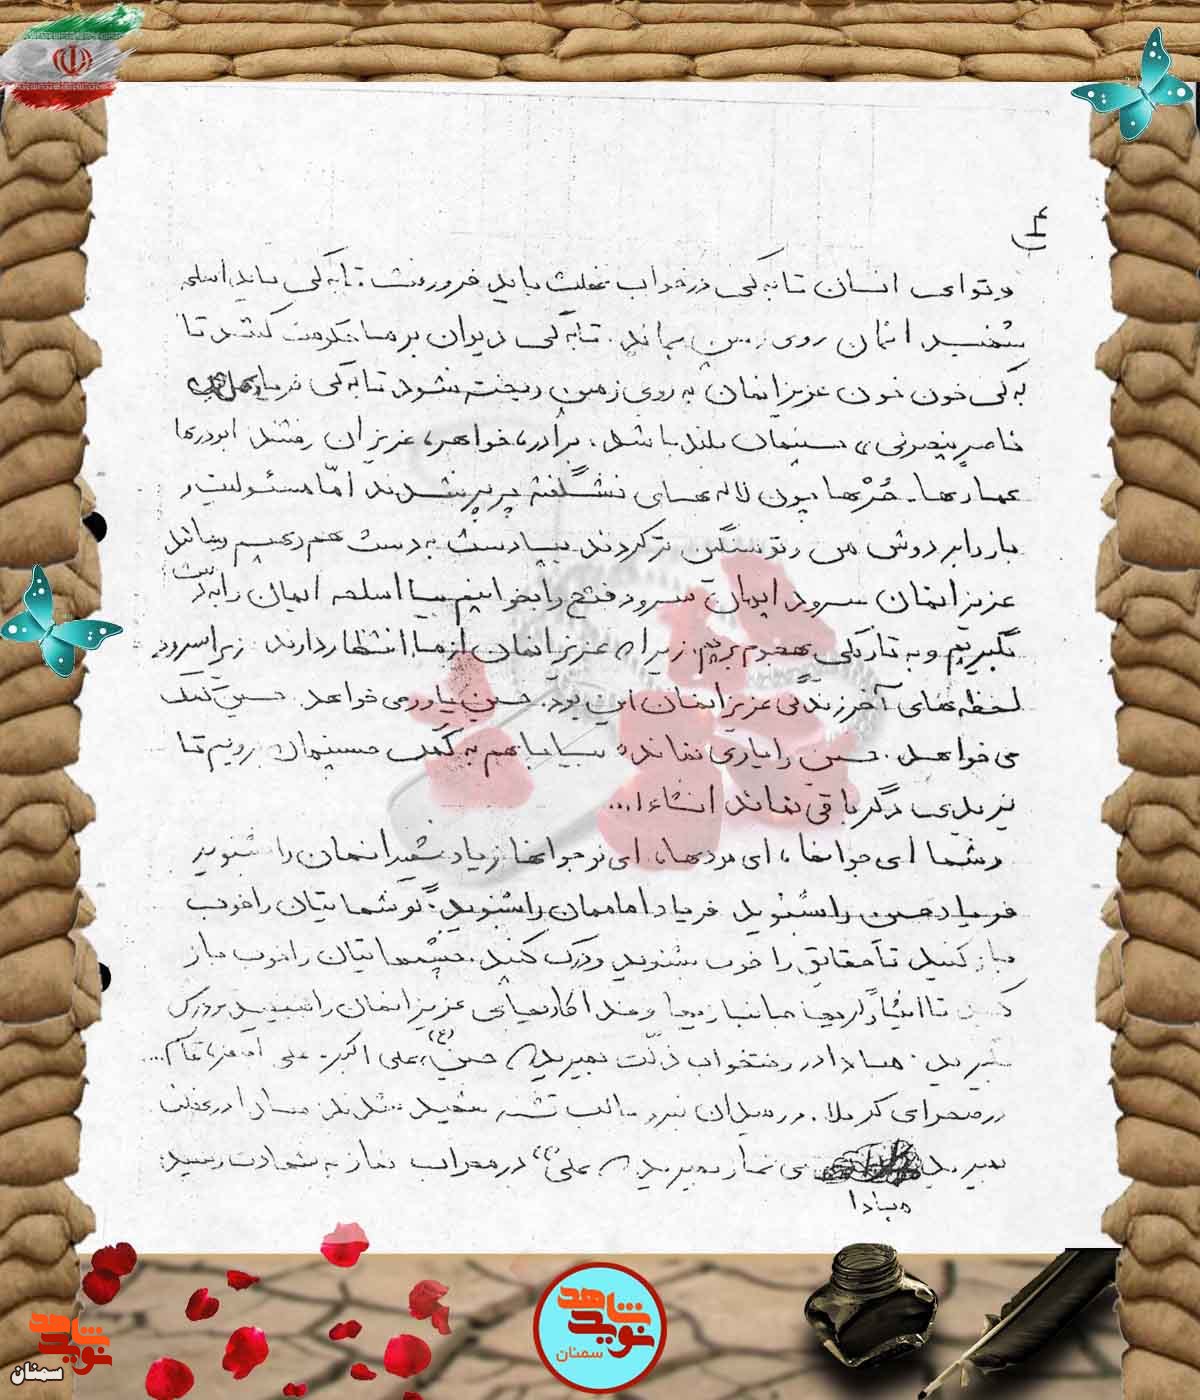 و توای انسان تا به کی در خواب غفلت باید فرو رفت. تا به کی باید اسلحه
شهیدانمان روی زمین بماند. تا به کی دیوان بر ما حکومت کنند تا
به کی خون خون عزیزانمان به روی زمین ریخته شود تا به کی فریاد هل من
ناصر ینصرنی حسینمان بلند باشد، برادر، خواهر، عزیزان رفتند ابوذرها
عمارها. حُرها چون لاله های نشگفته پرپر شدند امّا مسئولیت و
بار را بر دوش من و تو سنگین تر کردند بیا دست به دست هم دهیم و مانند
عزیزانمان سرود ایمان سرود فتح را بخوانیم بیا اسلحه ایمان را به دست
بگیریم و به تاریکی هجوم بریم. زیرا که عزیزانمان از ما انتظار دارند زیرا سرود
لحظه های آخر زندگی عزیزانمان این بود. حسین یاور می خواهد. حسین کمک
می خواهد. حسین را یاری نماند، بیا با هم به کمک حسینمان برویم تا
یزیدی دگر باقی نماند انشاءا...
و شما ای جوانها، ای مردها، ای نوجوانها فریاد شهیدانمان را بشنوید
فریاد حسین را بشنوید فریاد اماممان را بشنوید. گوشهایتان را خوب
باز کنید تا حقایق را خوب بشنوید و درک کنید. چشمهایتان را خوب باز
کنید تا ایثارگریها جانبازیها و فداکاریهای عزیزانمان را ببینید و درک
بگیرید. مبادا در رختخواب ذلّت بمیرید که حسین (ع)، علی اکبر. علی اصغر، قاسم...
در صحرای کربلا. در میدان نبرد با لب تشنه شهید شدند مبادا در غفلت
بمیرید می نماز بمیرید که علی (ع) در محراب نماز به شهادت رسید.
مبادا
نوید شاهد
سمنان
نوید شاهد
سمنان